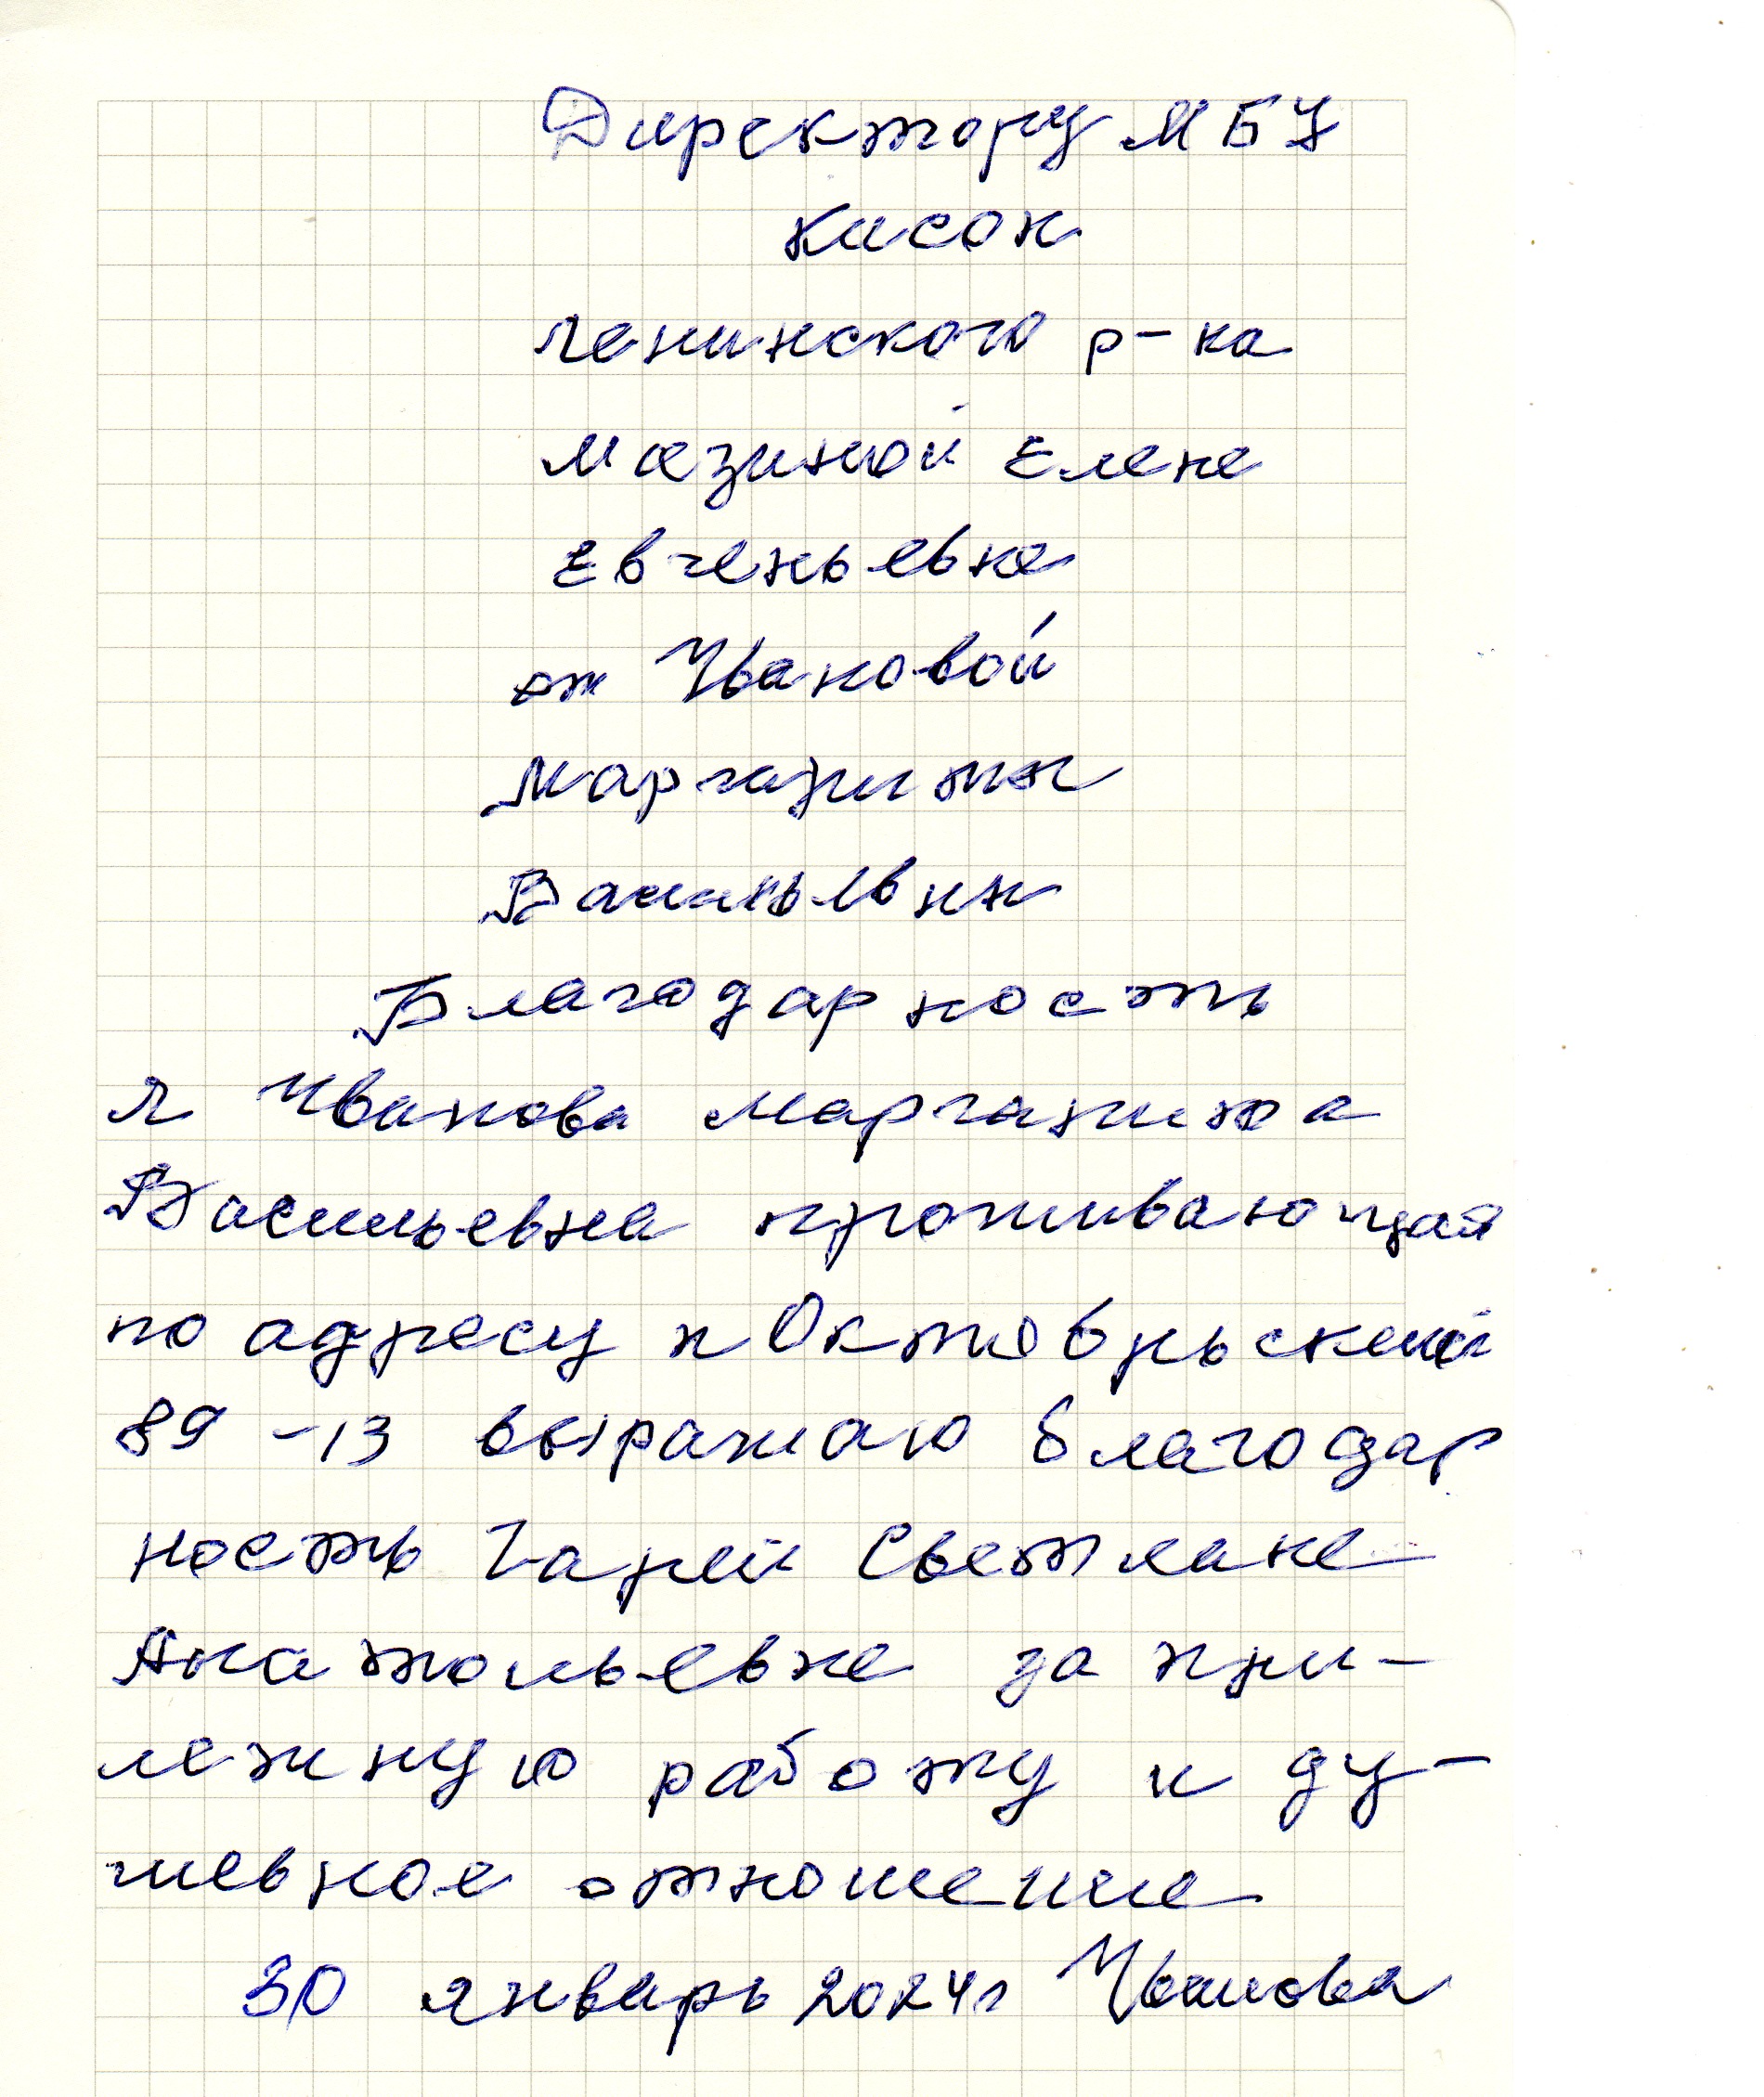 Директору МБУ
кисон
ленинского р-ка
Мазиной Елене
Евгеньевне
от Ивановой
Маргариты
Васильевны
Благодарность
я Иванова Маргарита
Васильевна проживающая
по адресу п Октябрьский
89-13 выражаю благодар
ность Гарей Светлане
Анатольевне за при-
лежную работу и ду-
шевное отношение
30 январь 2024г Иванова